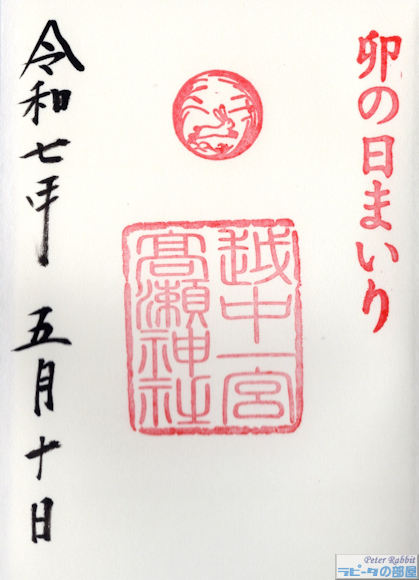 卯の日まいり
越中一宮
高瀬神社
令和七年 五月十日
Peter Rabbit
ラピータの部屋